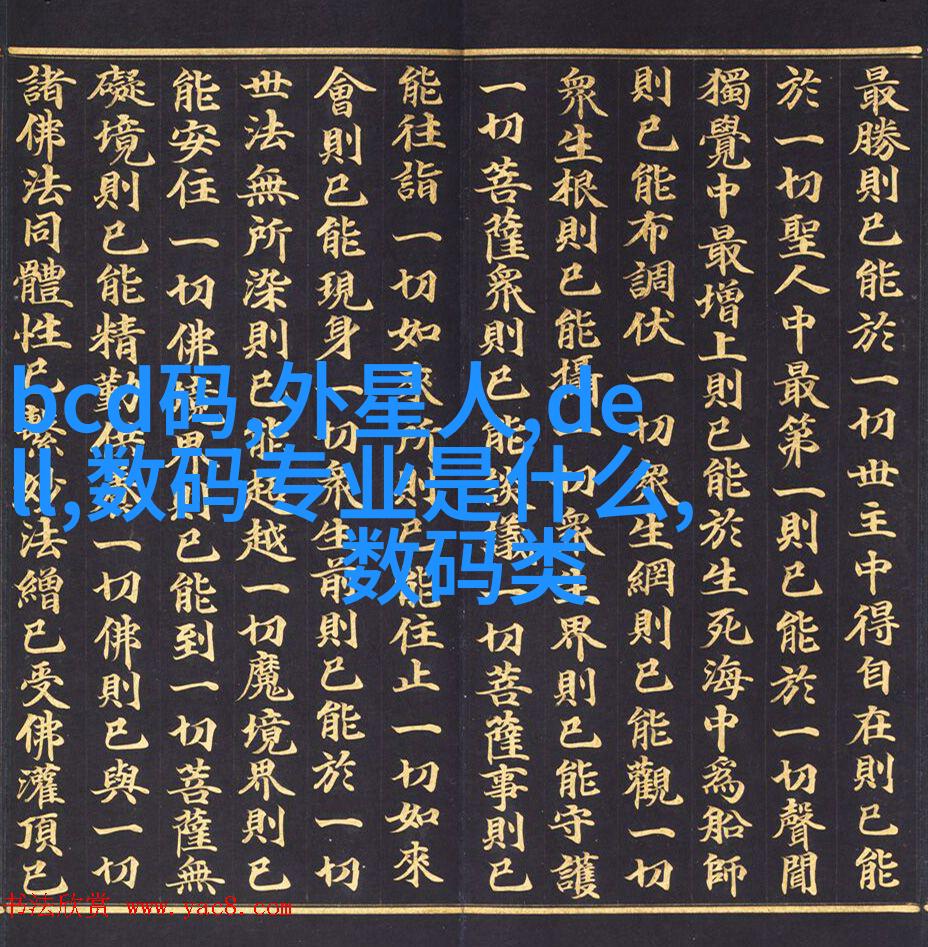 最勝則已能於一切世主中得自在則已能
於一切聖人中最第一則已能於一切聲聞
獨覺中最增上則已能於生死海中爲船師
則已能布調伏一切眾生網則已能觀一切
眾生根則已能攝一切眾生界則已能守護
一切菩薩眾則已能談議一切菩薩事則已
能往詣一切如來所則已能住止一切如來
會則已能現身一切眾生前則已能於一切
世法無所染則已能超越一切魔境界則已
能安住一切佛境界則已能到一切菩薩無
礙境則已能精勤供養一切佛則已與一切
諸佛法同體性已繫妙法繒已受佛灌頂已
bcd码,外星人,de
ll,数码专业是什么,
数码类
书法欣赏 www.yac8.com